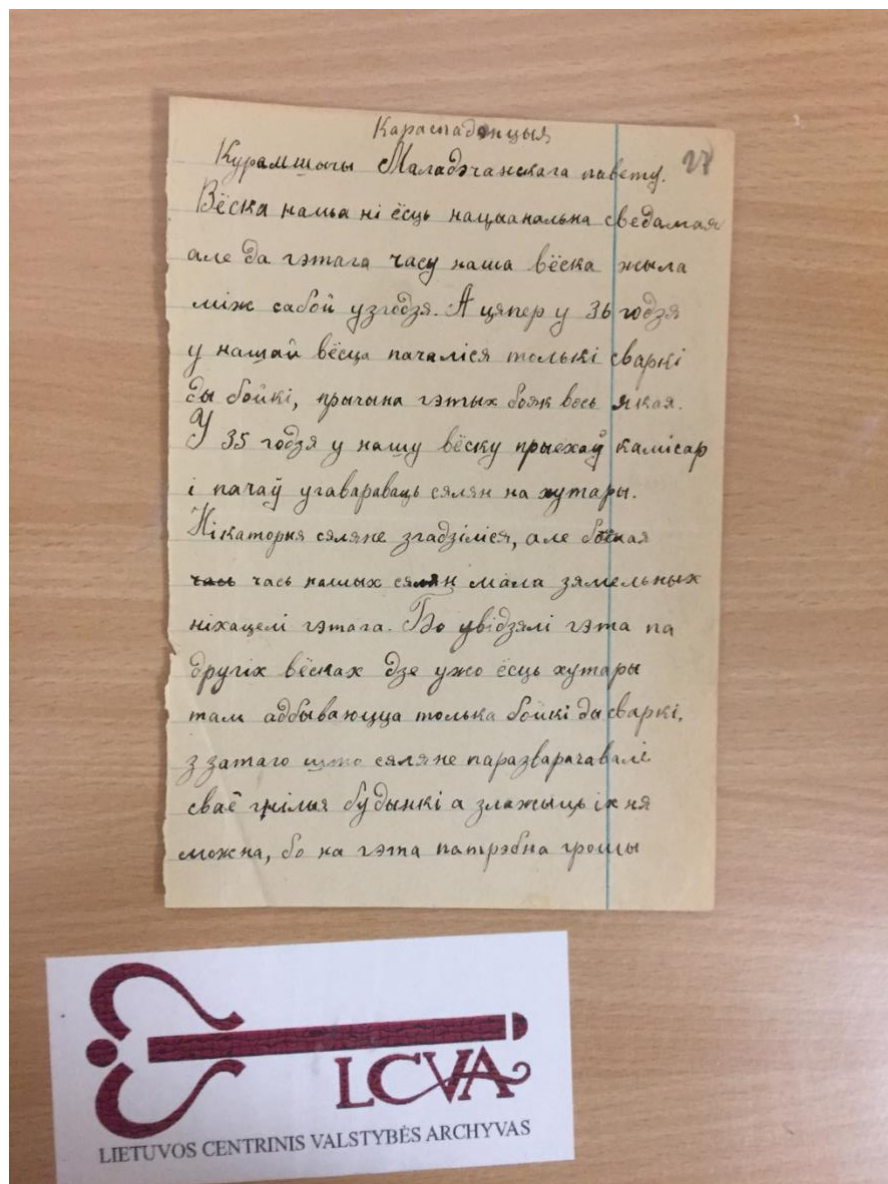 Караспадэнцыя
27
Курамшчы Маладэчанскага павету.
Вёска наша ні ёсць нацыанальна сведамая
але да гэтага часу наша вёска жыла
між сабой узгодзя. А цяпер у 36 годзя
у нашай вёсца пачаліся толькі сваркі
ды бойкі, прычына гэтых бояк вось якая.
У 35 годзя у нашу вёску прыехаў камісар
і пачаў угавараваць сялян на хутары.
Нікаторыя сяляне згадзіліся, але
часць нашых сялян мала зямельных
ніхацелі гэтага. Бо увідзялі гэта па
другіх вёсках дзе ужо ёсць хутары
там адбываюцца толька бойкі ды сваркі,
з затаго што сяляне паразварачавалі
сваё гнілыя будынкі а зложыць іх ня
можна, бо на гэта патрэбна грошы
LCVA
LIETUVOS CENTRINIS VALSTYBĖS ARCHYVAS